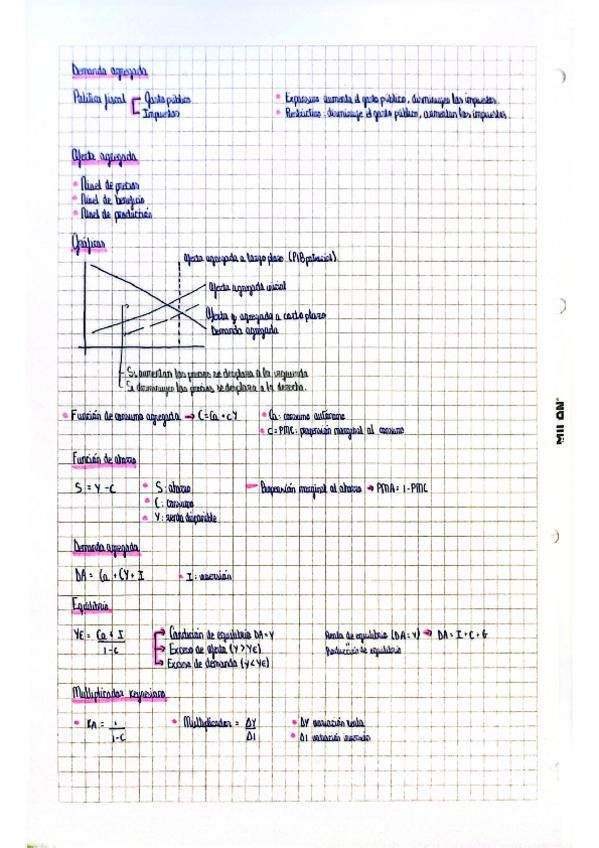 Demanda agregada
Política fiscal Gasto público
Impuestos
• Expansiva aumenta el gasto público, disminuyen los impuestos.
• Restrictiva: disminuye el gasto público, aumentan los impuestos.
Oferta agregada
• Nivel de precios
• Nivel de beneficio
• Nivel de producción
Gráficas
Oferta agregada a largo plazo (PIB potencial)
Oferta agregada inicial
Oferta agregada a corto plazo
Demanda agregada
Si aumentan los precios se desplaza a la izquierda
Si disminuyen los precios se desplaza a la derecha.
• Función de consumo agregada → C = Ca + cY
• Ca: consumo autónomo
• c = PMC: propensión marginal al consumo
Función de ahorro
S = Y - C
• S: ahorro
• C: consumo
• Y: renta disponible
Propensión marginal al ahorro → PMA = 1 - PMC
Demanda agregada
DA = Ca + CY + I • I: inversión
Equilibrio
YE = Ca + I / 1-c
Condición de equilibrio DA = Y
Exceso de oferta (Y > YE)
Exceso de demanda (Y < YE)
Renta de equilibrio (DA = Y) → DA = I + C + G
Producción de equilibrio
Multiplicador keynesiano
• KA = 1 / 1-C
• Multiplicador = ΔY / ΔI
• ΔY variación renta
• ΔI variación inversión